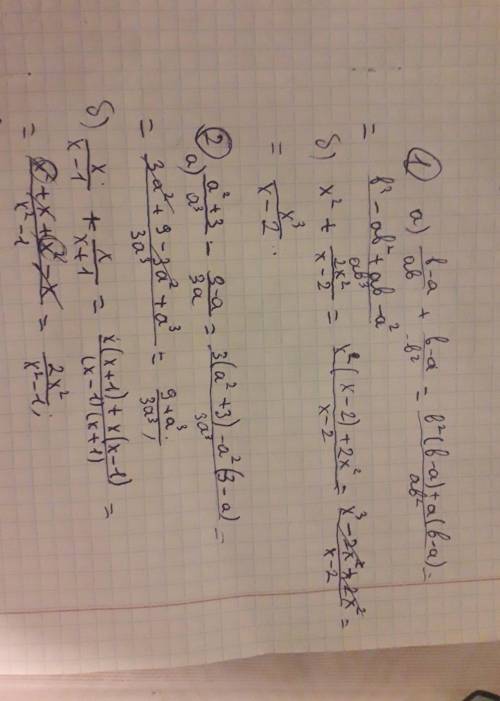 ① а) (b-a)/(ab) + (b-a)/(b²) = (b²(b-a)+a(b-a))/(ab²) =
= (b³-ab²+ab-a²)/(ab³)
б) x² + 2x²/(x-2) = (x²(x-2)+2x²)/(x-2) = (x³-2x²+2x²)/(x-2) =
= x³/(x-2).
② а) (a²+3)/a³ - (3-a)/(3a) = (3(a²+3)-a²(3-a))/(3a³) =
= (3a²+9-3a²+a³)/(3a³) = (9+a³)/(3a³);
б) x/(x-1) + x/(x+1) = (x(x+1)+x(x-1))/((x-1)(x+1)) =
= (x²+x+x²-x)/(x²-1) = 2x²/(x²-1);